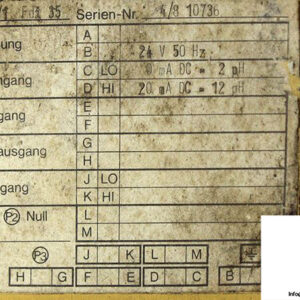 35 Serien-Nr. 4/8 10736
A
ung B 24 V 50 Hz
C LO 0 mA DC = 2 pH
ngang D HI 20 mA DC = 12 pH
E
gang F
G
ausgang H
J LO
gang K HI
P2 Null L
M
P3 J K L M
H G F E D C B
Info